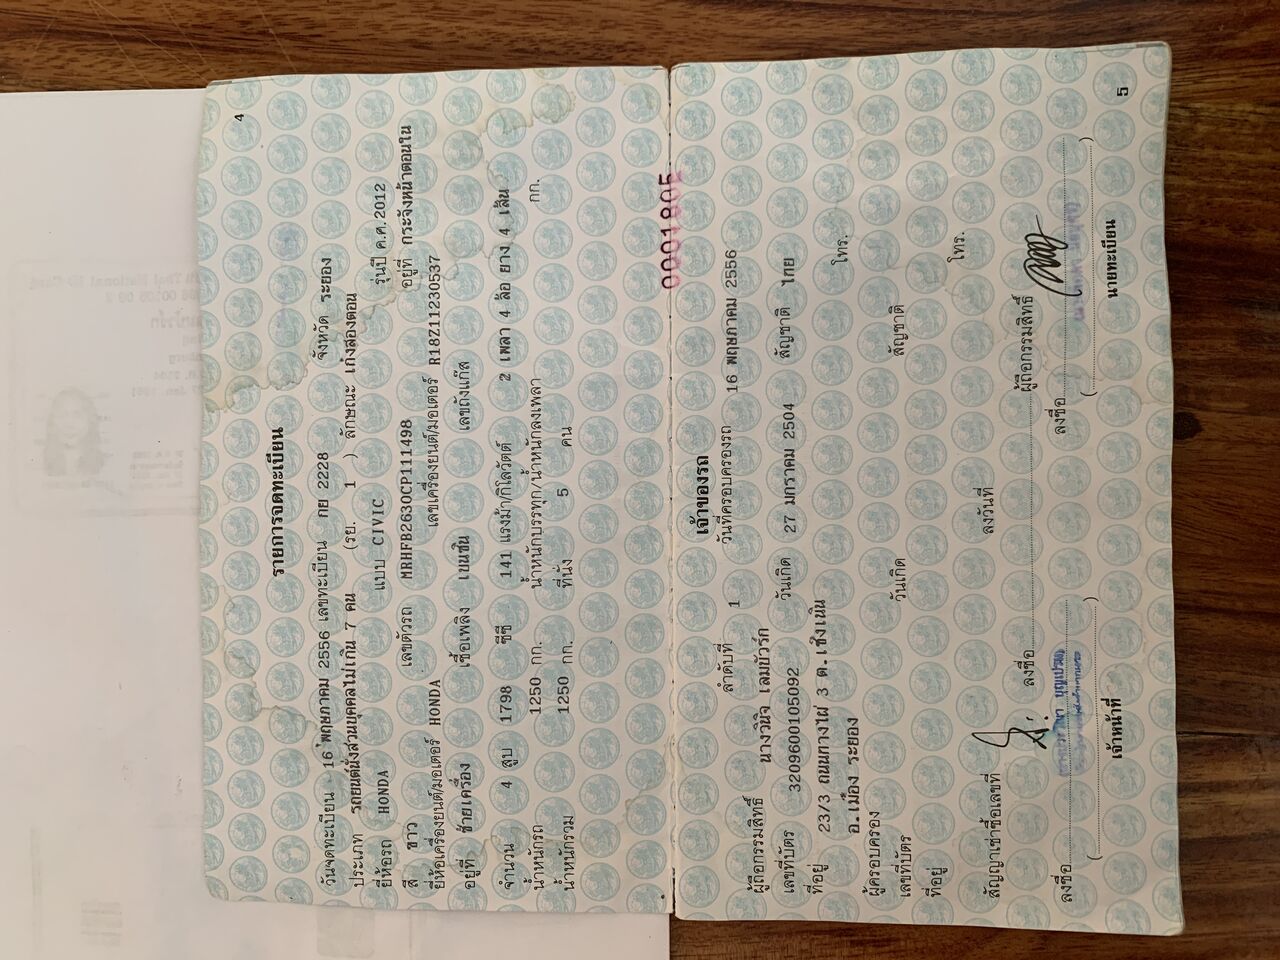 4
รายการจดทะเบียน
วันจดทะเบียน 16 พฤษภาคม 2556 เลขทะเบียน กย 2228 จังหวัด ระยอง
ประเภท รถยนต์นั่งส่วนบุคคลไม่เกิน 7 คน (รย. 1 ) ลักษณะ เก๋งสองตอน
ยี่ห้อรถ HONDA แบบ CIVIC รุ่นปี ค.ศ.2012
สี ขาว เลขตัวรถ MRHFB2630CP111498 อยู่ที่ กระจังหน้าตอนใน
ยี่ห้อเครื่องยนต์/มอเตอร์ HONDA เลขเครื่องยนต์/มอเตอร์ R18Z11230537
อยู่ที่ ซ้ายเครื่อง เชื้อเพลิง เบนซิน เลขถังแก๊ส
จำนวน 4 สูบ 1798 ซีซี 141 แรงม้า/กิโลวัตต์ 2 เพลา 4 ล้อ ยาง 4 เส้น
น้ำหนักรถ 1250 กก. น้ำหนักบรรทุก/น้ำหนักลงเพลา กก.
น้ำหนักรวม 1250 กก. ที่นั่ง 5 คน
0001805
เจ้าของรถ
ลำดับที่ 1 วันที่ครอบครองรถ 16 พฤษภาคม 2556
ผู้ถือกรรมสิทธิ์ นางวินิจ เลมบัวร์ก
เลขที่บัตร 3209600105092 วันเกิด 27 มกราคม 2504 สัญชาติ ไทย
ที่อยู่ 23/3 ถนนกางไผ่ 3 ต.เชิงเนิน โทร.
อ.เมือง ระยอง
ผู้ครอบครอง
เลขที่บัตร วันเกิด สัญชาติ
ที่อยู่ โทร.
สัญญาเช่าซื้อเลขที่ ลงวันที่
ลงชื่อ ผู้ถือกรรมสิทธิ์
ลงชื่อ ลงชื่อ
( ) ( )
เจ้าหน้าที่ นายทะเบียน
5